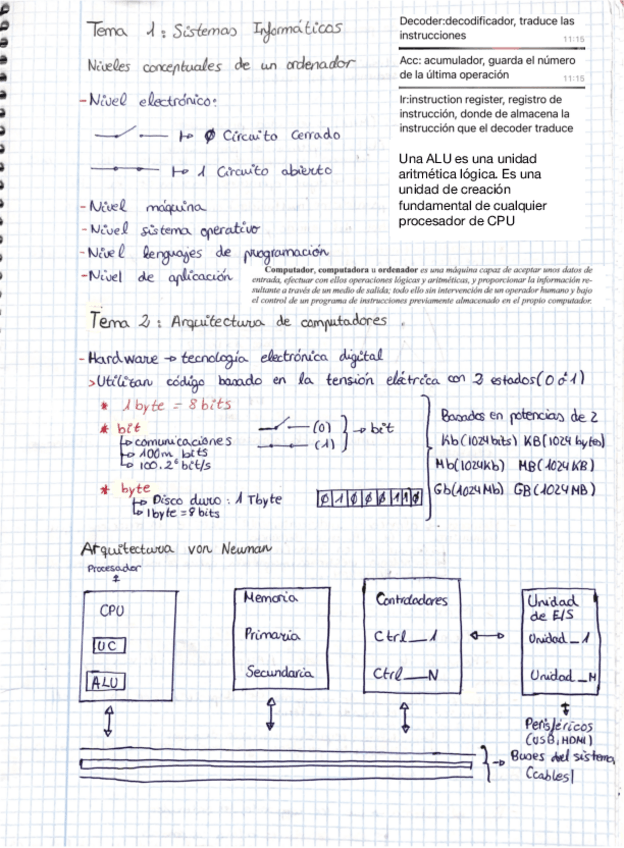 Tema 1: Sistemas Informáticos
Niveles conceptuales de un ordenador
- Nivel electrónico:
↦ 0 Circuito Cerrado
↦ 1 Circuito abierto
- Nivel máquina
- Nivel sistema operativo
- Nivel lenguajes de programación
- Nivel de aplicación
Decoder:decodificador, traduce las
instrucciones
11:15
Acc: acumulador, guarda el número
de la última operación
11:15
Ir:instruction register, registro de
instrucción, donde de almacena la
instrucción que el decoder traduce
Una ALU es una unidad
aritmética lógica. Es una
unidad de creación
fundamental de cualquier
procesador de CPU
Computador, computadora u ordenador es una máquina capaz de aceptar unos datos de
entrada, efectuar con ellos operaciones lógicas y aritméticas, y proporcionar la información re-
sultante a través de un medio de salida; todo ello sin intervención de un operador humano y bajo
el control de un programa de instrucciones previamente almacenado en el propio computador.
Tema 2: Arquitectura de computadores.
- Hardware → tecnología electrónica digital
> Utilizan código basado en la tensión eléctrica con 2 estados (0 ó 1)
* 1 byte = 8 bits
* bit
↳ comunicaciones
↳ 100m bits
↳ 100.2⁶ bit/s
(0)
(1)
→ bit
* byte
↳ Disco duro: 1 Tbyte
↳ 1byte = 8 bits
0 1 0 0 0 1 1 0
Basados en potencias de 2
Kb (1024 bits) KB (1024 bytes)
Mb (1024Kb) MB (1024 KB)
Gb (1024 Mb) GB (1024 MB)
Arquitectura von Neuman
Procesador
CPU
UC
ALU
Memoria
Primaria
Secundaria
Controladores
Ctrl_1
Ctrl_N
Unidad
de E/S
Unidad_1
Unidad_M
Periféricos
(USB, HDMI)
→ Buses del sistema
(cables)